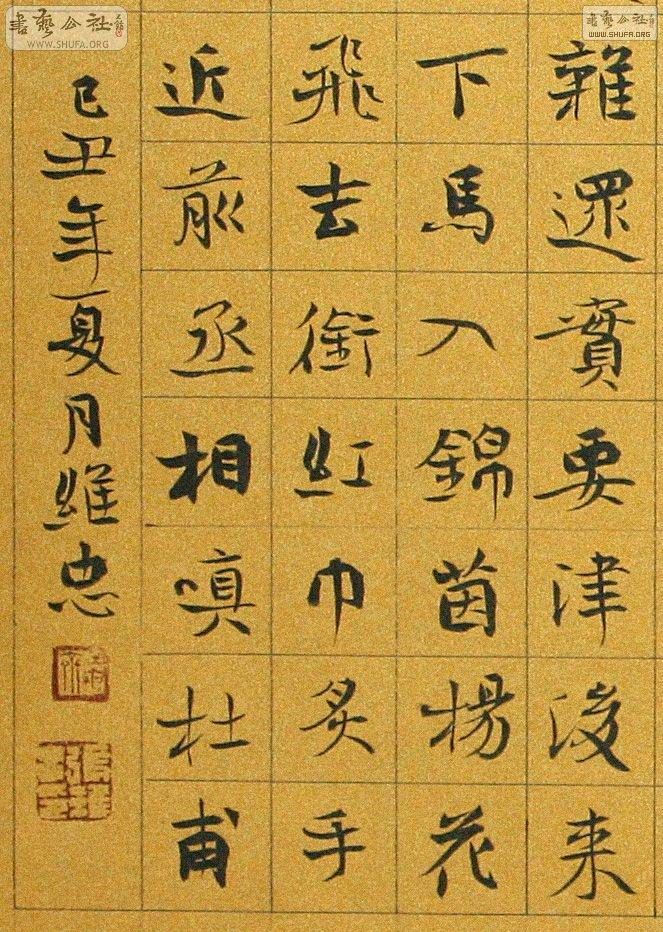 書藝公社
WWW.SHUFA.ORG
書藝公社
WWW.SHUFA.ORG
雜遝實要津後来
下馬入錦茵楊花
飛去銜紅巾炙手
近前丞相嗔杜甫
己丑年夏月維忠